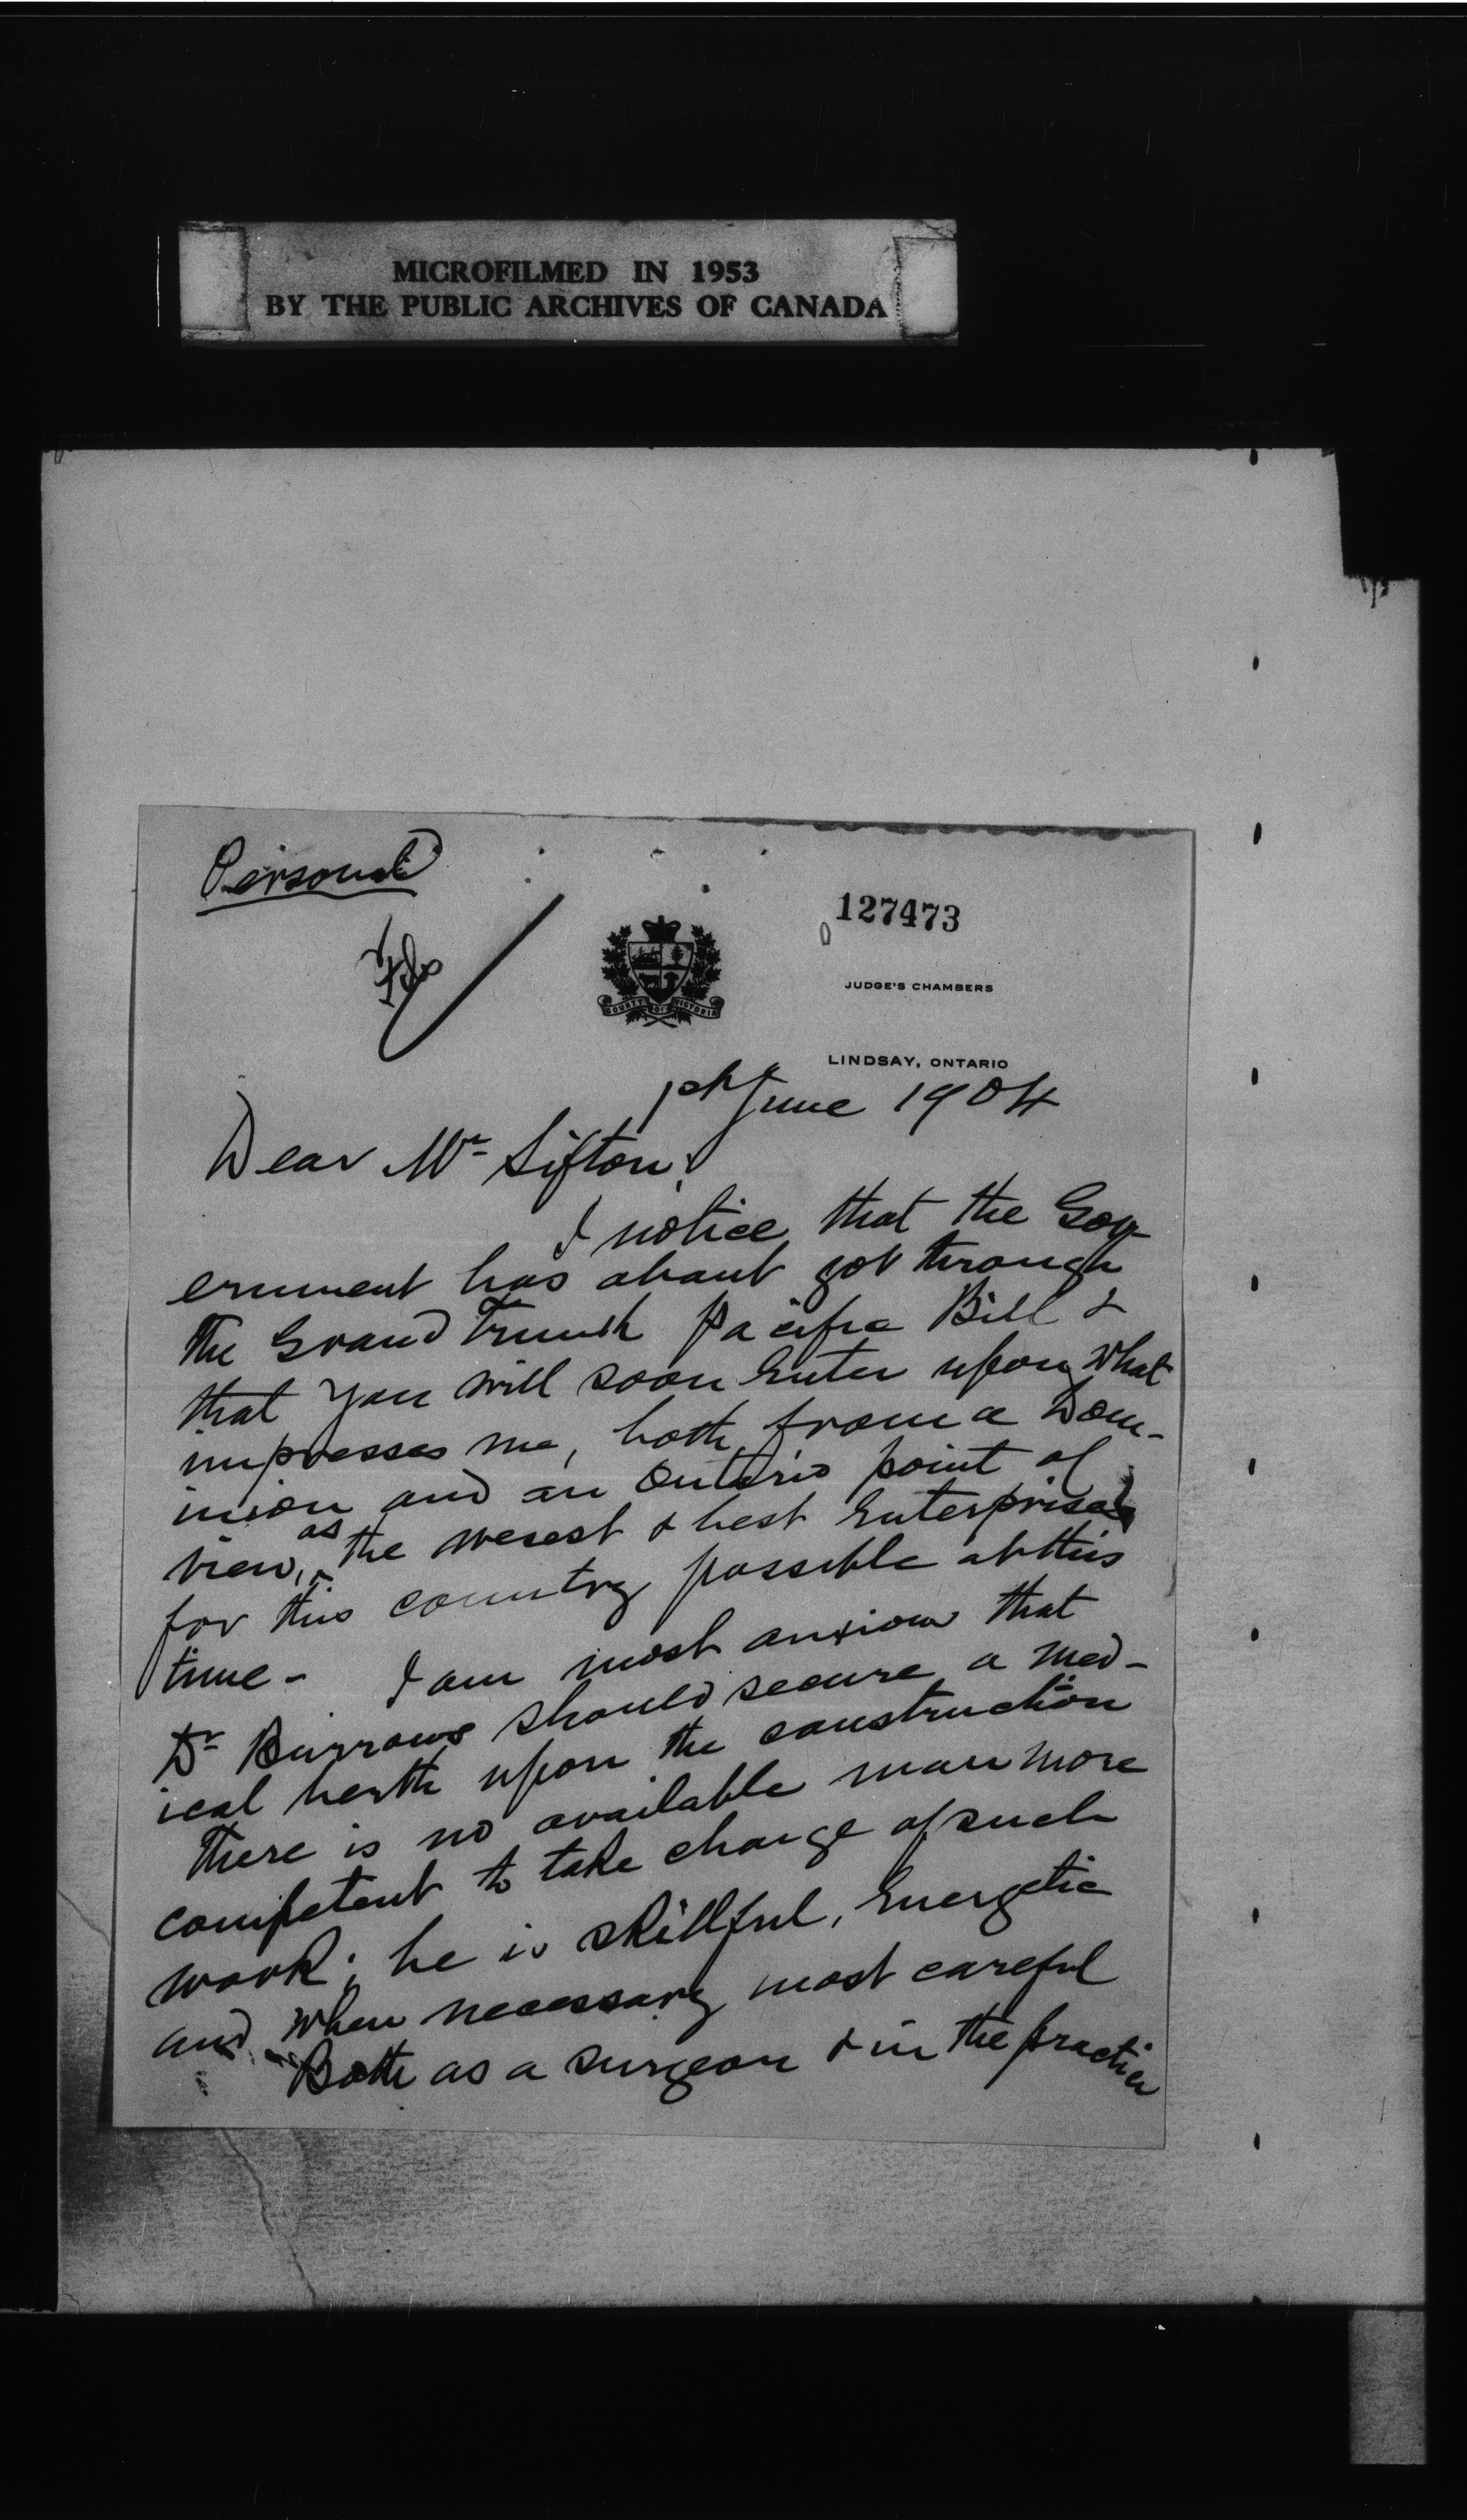 MICROFILMED IN 1953
BY THE PUBLIC ARCHIVES OF CANADA
Personal
127473
JUDGE'S CHAMBERS
COUNTY OF VICTORIA
LINDSAY, ONTARIO
1st June 1904
Dear Mr Sifton,
I notice that the Gov-
ernment has about got through
the Grand Trunk Pacific Bill &
that you will soon enter upon what
impresses me, both from a Dom-
inion and an Ontario point of
view, as the wisest & best Enterprise
for this country possible at this
time - I am most anxious that
Dr Burrows should secure a med-
ical berth upon the construction
There is no available man more
competent to take charge of such
work; he is skillful, energetic
and when necessary most careful
Both as a surgeon & in the practice